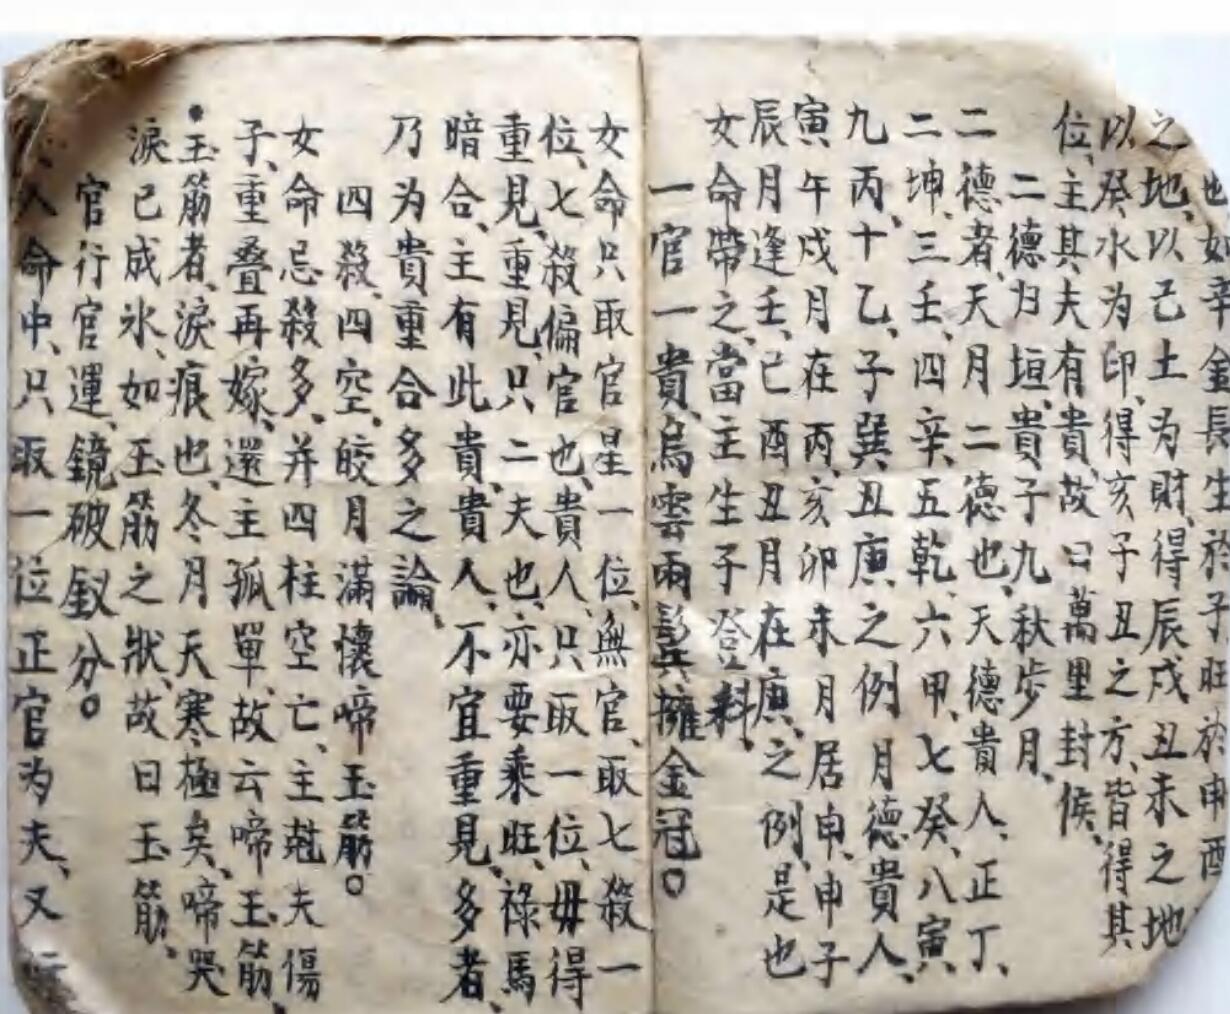 也如辛金長生於子旺於申酉
之地、以己土为財、得辰戍丑未之地
以癸水为印、得亥子丑之方、皆得其
位、主其夫有貴、故曰萬里封侯、
二德归垣、貴子九秋步月、
二德者、天月二德也、天德貴人、正丁、
二坤、三壬、四辛、五乾、六甲、七癸、八寅、
九丙、十乙、子巽丑庚、之例月德貴人、
寅午戍月在丙、亥卯未月居申、申子
辰月逢壬、巳酉丑月在庚、之例、是也
女命帶之、當主生子登科、
一官一貴、烏雲兩鬂擁金冠。
女命只取官星一位、無官、取七殺一
位、七殺偏官也、貴人、只取一位、毋得
重見、重見、只二夫也、亦要乘旺、祿馬
暗合、主有此貴、貴人、不宜重見、多者、
乃为貴重合多之論、
四殺、四空、皎月滿懷啼玉筯。
女命忌殺多、并四柱空亡、主尅夫傷
子、重叠再嫁、還主孤單、故云啼玉筯、
玉筯者、淚痕也、冬月天寒極矣、啼哭
淚已成氷、如玉筯之狀、故曰玉筋、
官行官運、鏡破釵分。
人命中、只取一位正官为夫、又行